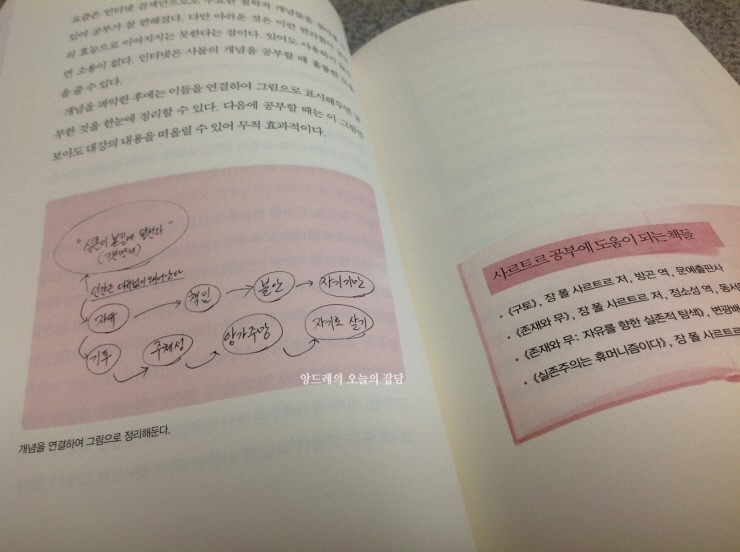 요즘은 인터넷 검색만으로도 주요한 철학적 개념들을
있어 공부가 참 편해졌다. 다만 아쉬운 것은 이런 편리함이
의 효능으로 이어지지는 못한다는 점이다. 있어도 사용하지
면 소용이 없다. 인터넷은 사물의 개념을 공부할 때 훌륭한
을 줄 수 있다.
개념을 파악한 후에는 이들을 연결하여 그림으로 표시해두면
부한 것을 한눈에 정리할 수 있다. 다음에 공부할 때는 이 그림만
보아도 대강의 내용을 떠올릴 수 있어 무척 효과적이다.
"실존이 본질에 앞선다"
인간은
자유
책임
불안
자기기만
기투
구체성
앙가주망
자기로 살기
앙드레의 오늘의 잡담
개념을 연결하여 그림으로 정리해둔다.
사르트르 공부에 도움이 되는 책들
• 《구토》, 장 폴 사르트르 저, 방곤 역, 문예출판사
• 《존재와 무》, 장 폴 사르트르 저, 정소성 역, 동서
• 《존재와 무: 자유를 향한 실존적 탐색》, 변광배
• 《실존주의는 휴머니즘이다》, 장 폴 사르트르